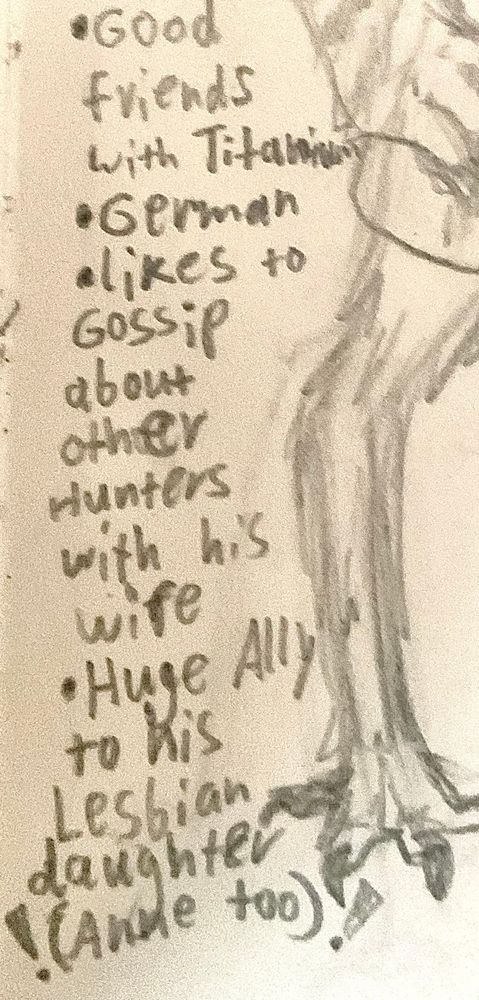 •Good
friends
with Titanium
•German
•likes to
Gossip
about
other
Hunters
with his
wife
•Huge Ally
to his
Lesbian
daughter
!(Anne too)!